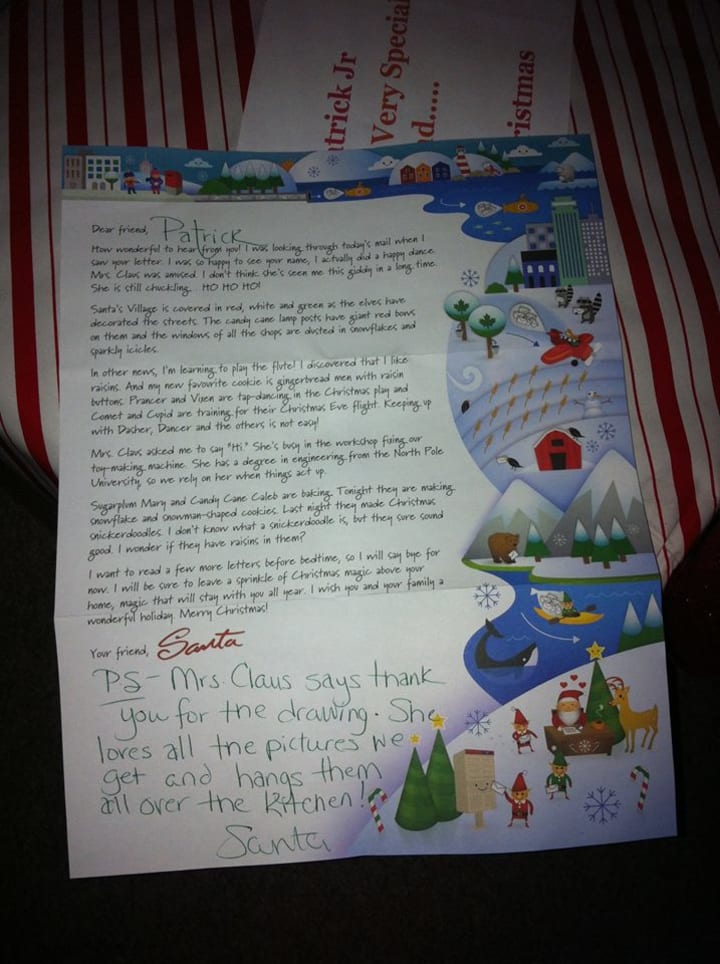 atrick Jr
Very Special
d.....
ristmas
Dear friend, Patrick
How wonderful to hear from you! I was looking through today's mail when I
saw your letter. I was so happy to see your name, I actually did a happy dance.
Mrs. Claus was amused. I don't think she's seen me this giddy in a long time.
She is still chuckling... HO HO HO!
Santa's Village is covered in red, white and green as the elves have
decorated the streets. The candy cane lamp posts have giant red bows
on them and the windows of all the shops are dusted in snowflakes and
sparkly icicles.
In other news, I'm learning to play the flute! I discovered that I like
raisins. And my new favourite cookie is gingerbread men with raisin
buttons. Prancer and Vixen are tap-dancing in the Christmas play and
Comet and Cupid are training for their Christmas Eve flight. Keeping up
with Dasher, Dancer and the others is not easy!
Mrs. Claus asked me to say "Hi." She's busy in the workshop fixing our
toy-making machine. She has a degree in engineering from the North Pole
University, so we rely on her when things act up.
Sugarplum Mary and Candy Cane Caleb are baking. Tonight they are making
snowflake and snowman-shaped cookies. Last night they made Christmas
snickerdoodles. I don't know what a snickerdoodle is, but they sure sound
good. I wonder if they have raisins in them?
I want to read a few more letters before bedtime, so I will say bye for
now. I will be sure to leave a sprinkle of Christmas magic above your
home, magic that will stay with you all year. I wish you and your family a
wonderful holiday. Merry Christmas!
Your friend, Santa
PS - Mrs. Claus says thank
you for the drawing. She
loves all the pictures we
get and hangs them
all over the kitchen!
Santa